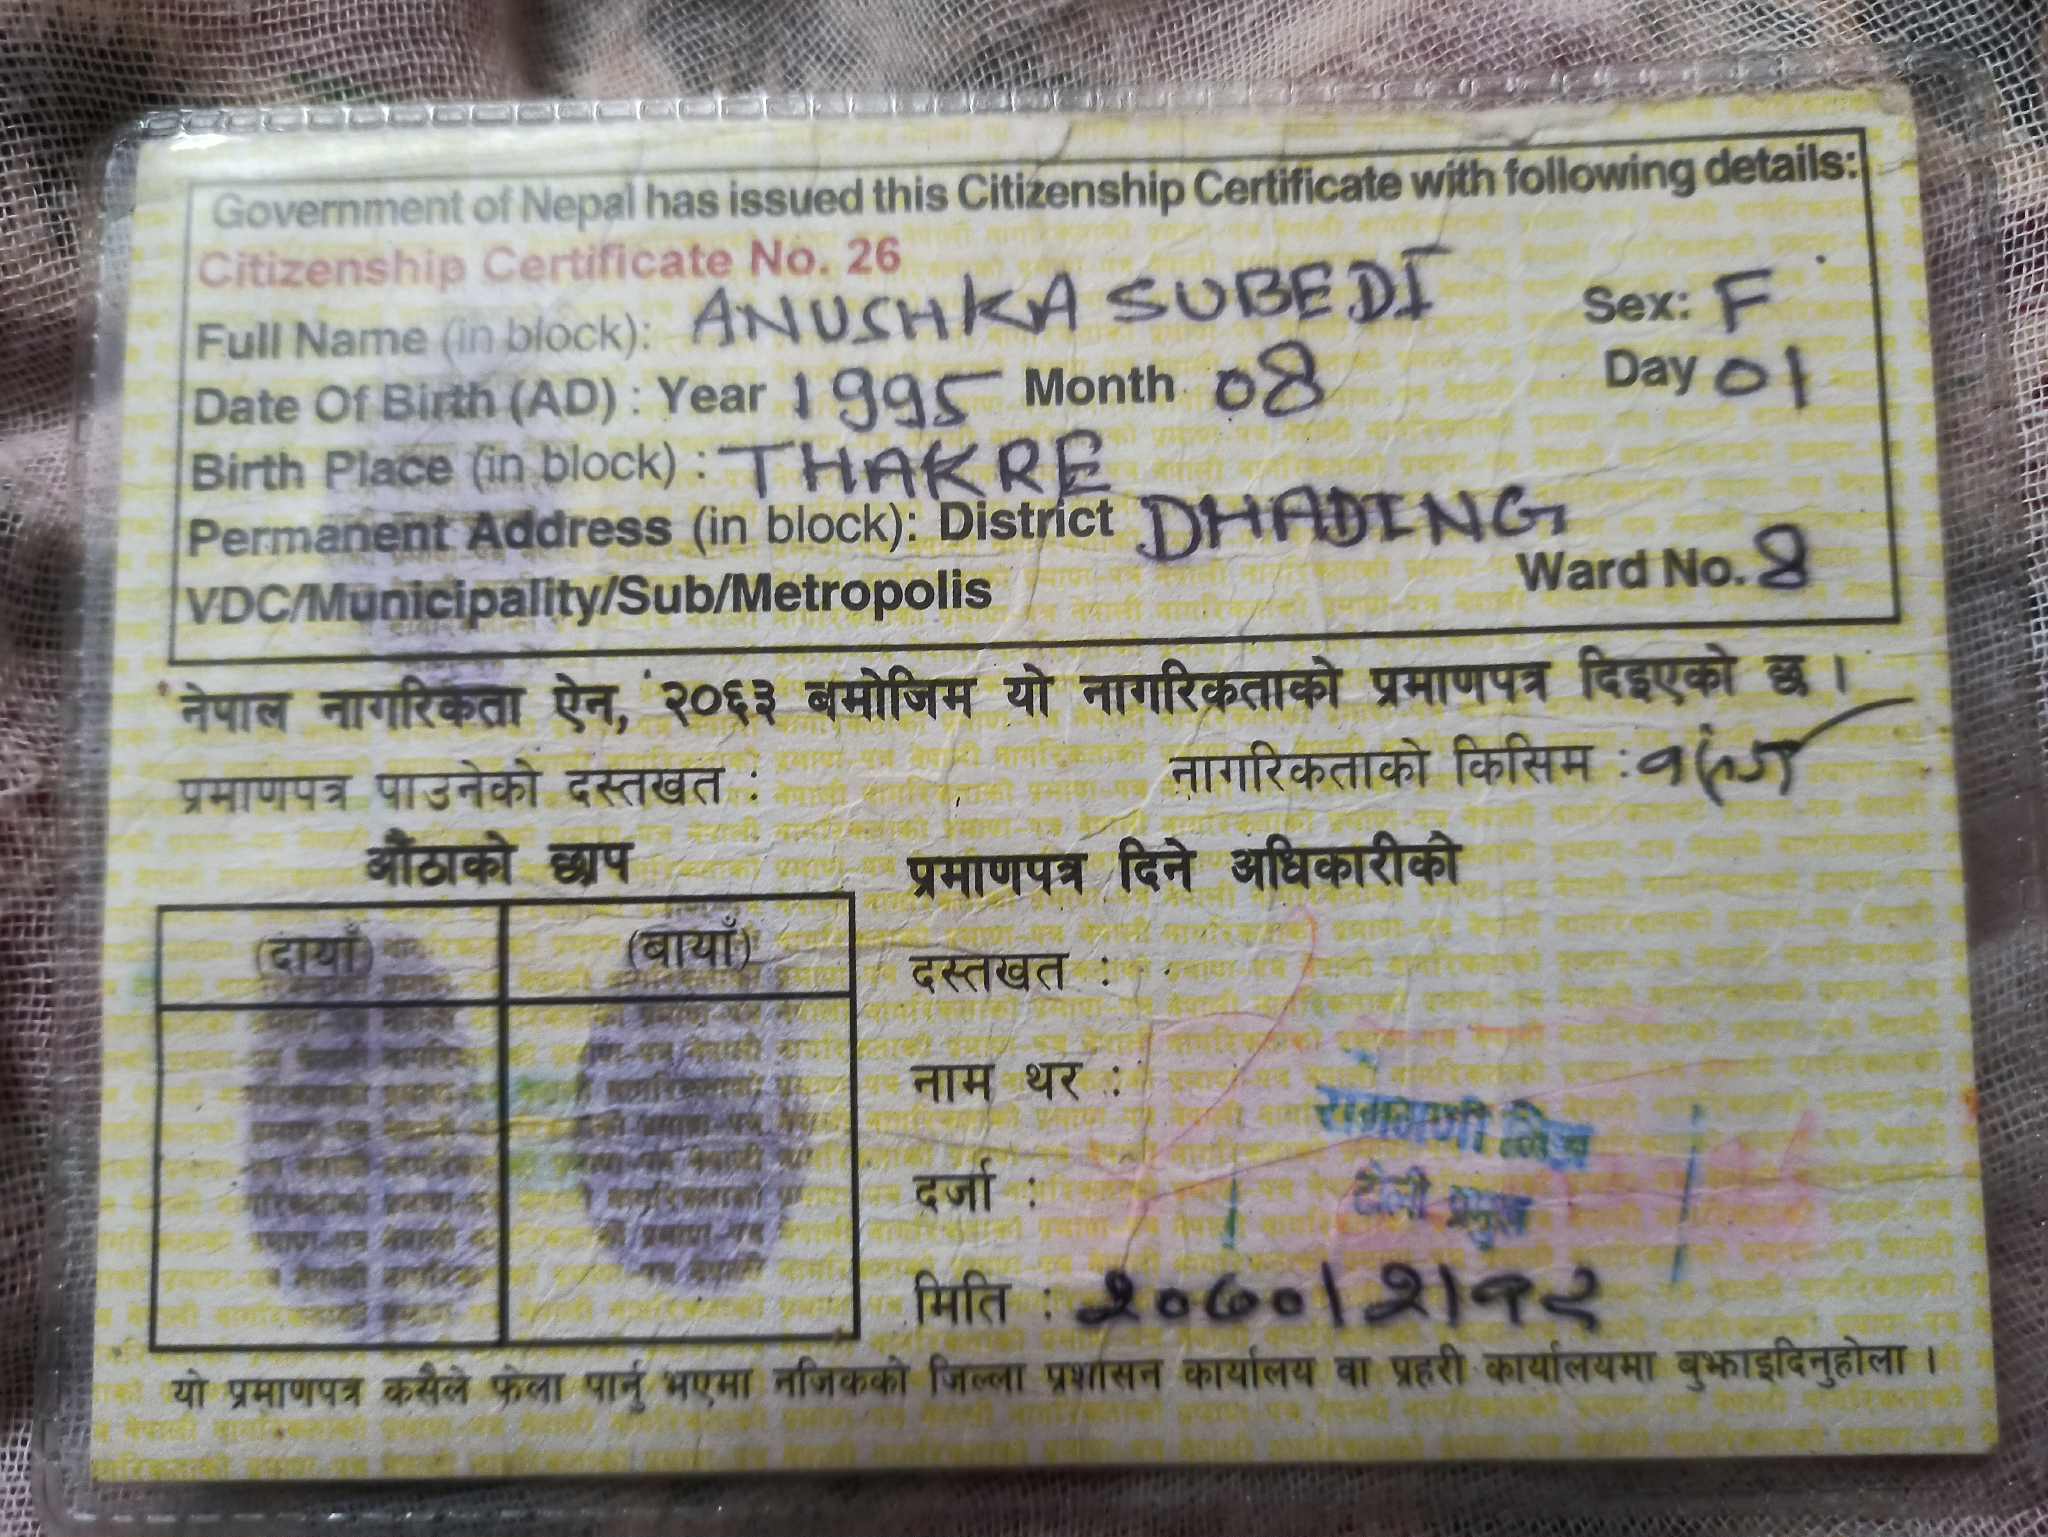 Government of Nepal has issued this Citizenship Certificate with following details:
Citizenship Certificate No. 26
Full Name (in block): ANUSHKA SUBEDI Sex: F
Date Of Birth (AD) : Year 1995 Month 08 Day 01
Birth Place (in block) : THAKRE
Permanent Address (in block): District DHADING
VDC/Municipality/Sub/Metropolis Ward No. 8
नेपाल नागरिकता ऐन, २०६३ बमोजिम यो नागरिकताको प्रमाणपत्र दिइएको छ ।
प्रमाणपत्र पाउनेको दस्तखत : नागरिकताको किसिम :
औंठाको छाप
(दायाँ) (बायाँ)
प्रमाणपत्र दिने अधिकारीको
दस्तखत :
नाम थर :
दर्जा : टोली प्रमुख
मिति : २०७०।२।१२
यो प्रमाणपत्र कसैले फेला पार्नु भएमा नजिकको जिल्ला प्रशासन कार्यालय वा प्रहरी कार्यालयमा बुझाइदिनुहोला ।